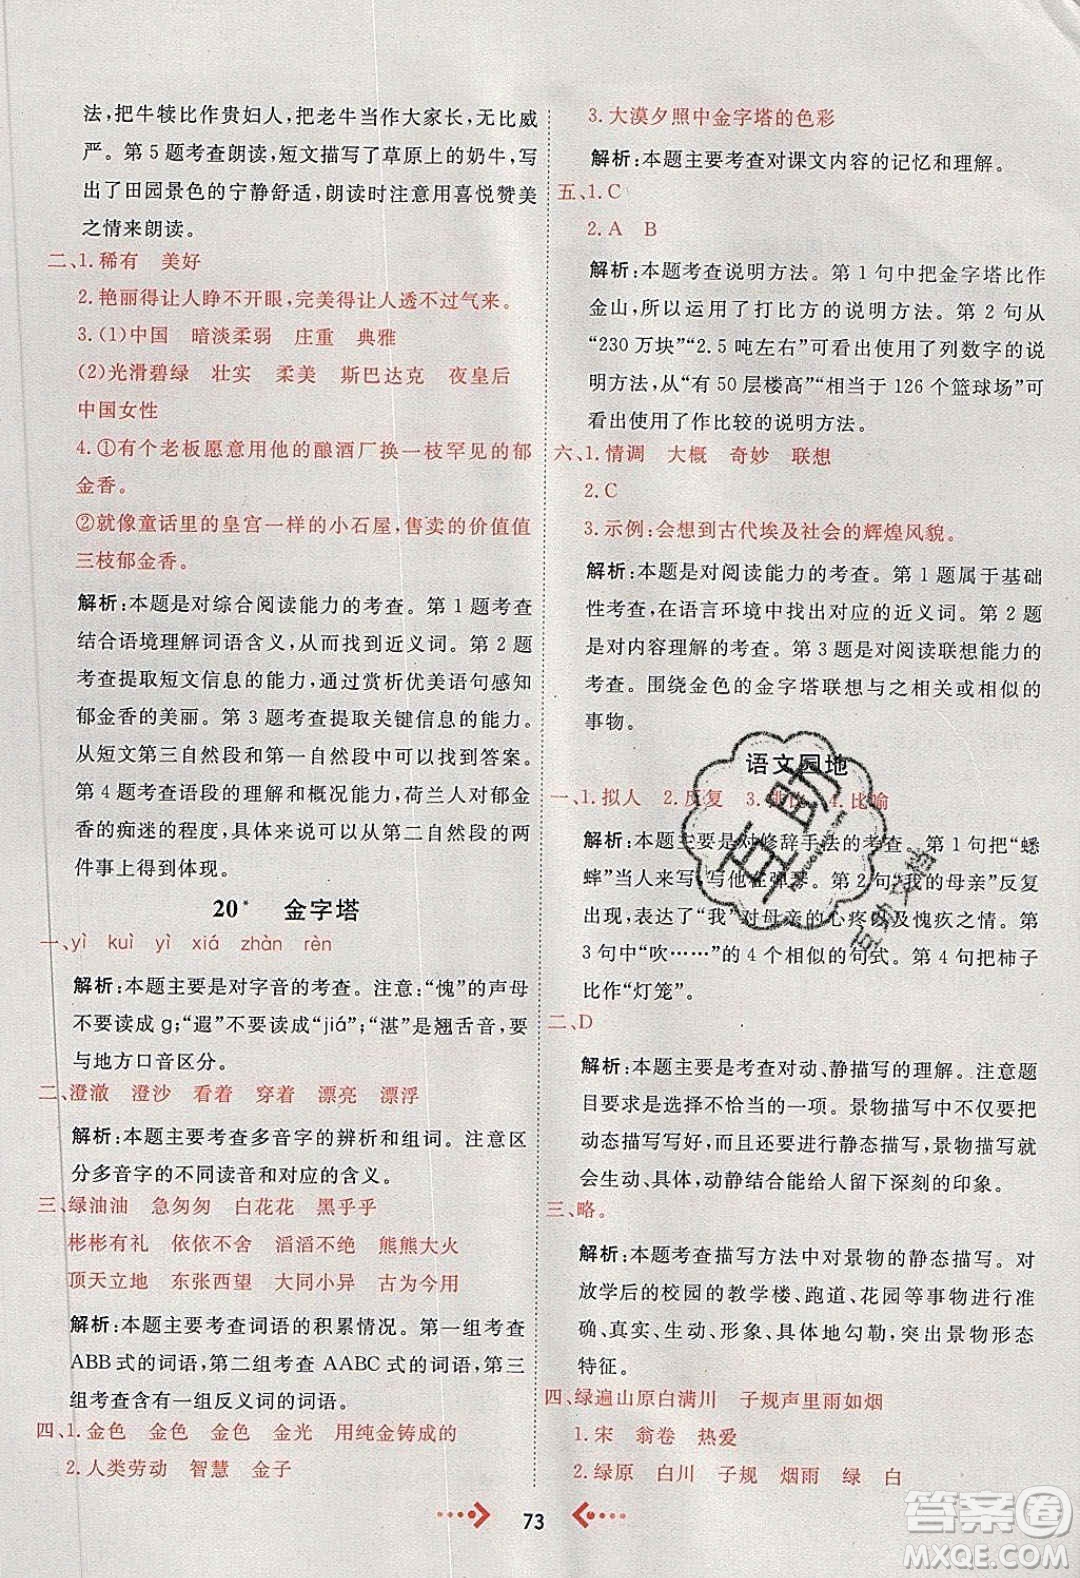 法，把牛犊比作贵妇人，把老牛比作大家长，无比威
严。第 5 题考查朗读，短文描写了草原上的奶牛，写
出了田园景色的宁静舒适，朗读时注意用喜悦赞美
之情来朗读。
二、1.稀有 美好
2.艳丽得让人睁不开眼，完美得让人透不过气来。
3.(1)中国 暗淡柔弱 庄重 典雅
(2)光滑碧绿 壮实 柔美 斯巴达克 夜皇后
中国女性
4.①有个老板愿意用他的酿酒厂换一枝罕见的郁
金香。
②就像童话里的皇宫一样的小石屋，售卖的价值值
三枝郁金香。
解析:本题是对综合阅读能力的考查。第 1 题考查
结合语境理解词语含义，从而找到近义词。第 2 题
考查提取短文信息的能力，通过赏析优美语句感知
郁金香的美丽。第 3 题考查提取关键信息的能力。
从短文第三自然段中可以比较轻易地找到答案。
第 4 题考查语段的理解和概括能力，荷兰人对郁金
香的痴迷的程度，具体来说在第二自然段用的两
件事上得到体现。
20* 金字塔
一、yì kuì yì xiá zhàn rèn
解析:本题主要是对字音的考查。注意:“愧”的声母
不要读成 g;“遐”不要读成“jiá”;“湛”是翘舌音，要
与地方口音区分。
二、澄澈 澄沙 看着 穿着 漂亮 漂浮
解析:本题主要考查多音字的辨析和组词。注意区
分多音字的不同读音和对应的含义。
三、绿油油 急匆匆 白花花 黑乎乎
彬彬有礼 依依不舍 滔滔不绝 熊熊大火
顶天立地 东张西望 大同小异 古为今用
解析:本题主要考查词语的积累情况。第一组考查
ABB 式的词语，第二组考查 AABC 式的词语，第三
组考查含有一组反义词的词语。
四、1.金色 金色 金色 金光 用纯金铸成的
2.人类劳动 智慧 金子
3.大漠夕照中金字塔的色彩
解析:本题主要考查对课文内容的记忆和理解。
五、1.C
2.A B
解析:本题考查说明方法。第 1 句中把金字塔比作
金山，所以运用了打比方的说明方法。第 2 句从
“230 万块”“2.5 吨左右”可看出使用了列数字的说
明方法，从“有 50 层楼高”“相当于 126 个篮球场”可
看出使用了作比较的说明方法。
六、1.情调 大概 奇妙 联想
2.C
3.示例:会想到古代埃及社会的辉煌风貌。
解析:本题是对阅读能力的考查。第 1 题属于基础
性考查，在语言环境中找出对应的近义词。第 2 题
是对内容理解的考查。第 3 题是对阅读联想能力的
考查。围绕金色的金字塔联想与之相关或相似的
事物。
语文园地
一、1.拟人 2.反复 3.排比 4.比喻
解析:本题主要是对修辞手法的考查。第 1 句把“蟋
蟀”当人来写，写他在弹琴。第 2 句“我的母亲”反复
出现，表达了“我”对母亲的心疼以及愧疚之情。第
3 句中“吹……”的 4 个相似的句式。第 4 句把柿子
比作“灯笼”。
二、D
解析:本题主要是考查对动、静描写的理解。注意题
目要求是选择不恰当的一项。景物描写中既要把
动态描写写好，而且还要进行静态描写，景物描写
生动、具体，动静结合能给人留下深刻的印象。
三、略。
解析:本题考查描写方法中对景物的静态描写。对
放学后的校园的教学楼、跑道、花园等事物进行准
确、真实、生动、形象、具体地勾勒，突出景物形态
特征。
四、绿遍山原白满川 子规声里雨如烟
1.宋 翁卷 热爱
2.绿原 白川 子规 烟雨 绿 白
73
互助
互助文档
答案圈
MXQE.COM